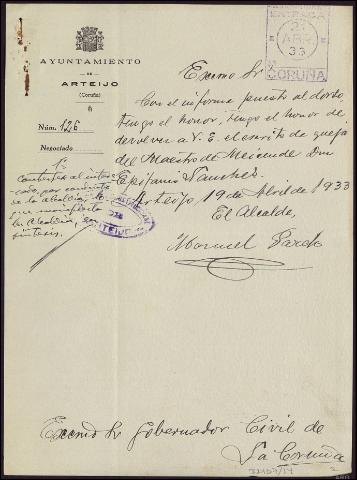 AYUNTAMIENTO
DE
ARTEIJO
(Coruña)
Núm. 126
Negociado
ENTRADA
ABR
33
CORUÑA
Excmo Sr
Con el informe puesto al dorso,
tengo el honor, tengo el honor de
devolver a V. E. el escrito de queja
del Maestro de Meicende Don
Epifanio Sanchez.
Arteijo 19 de Abril de 1933
El Alcalde,
Manuel Pardo
1º
Contestar al
por conducto
de la alcaldía, lo
que manifiesta
la Alcaldía, en
síntesis.
ARTEIJO
Excmo Sr Gobernador Civil de
La Coruña
2